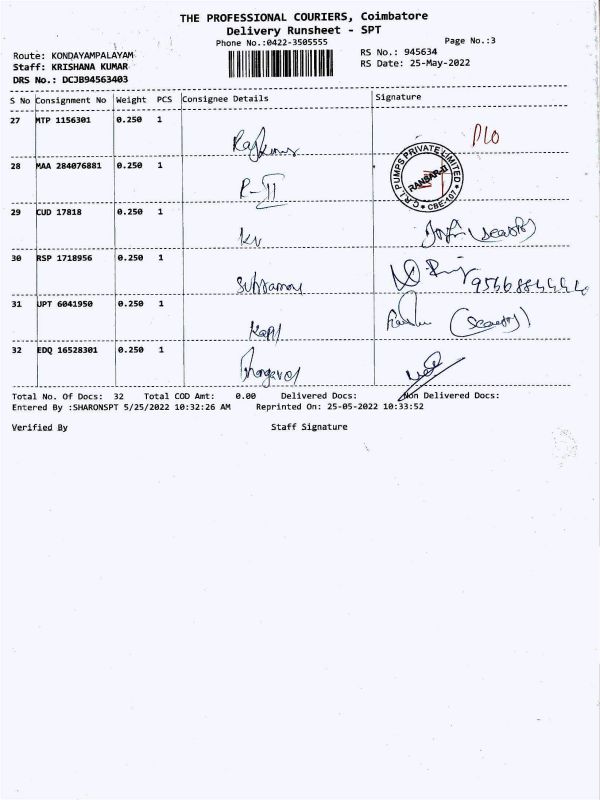 THE PROFESSIONAL COURIERS, Coimbatore
Delivery Runsheet - SPT
Phone No.:0422-3505555
Page No.:3
Route: KONDAYAMPALAYAM
RS No.: 945634
Staff: KRISHANA KUMAR
RS Date: 25-May-2022
DRS No.: DCJB94563403
S No Consignment No Weight PCS Consignee Details Signature
27 MTP 1156301 0.250 1
Rajkumar
PLO
28 MAA 284076881 0.250 1
R-II
C.R.I. PUMPS PRIVATE LIMITED
CBE-107
29 CUD 17818 0.250 1
KV
30 RSP 1718956 0.250 1
31 UPT 6041950 0.250 1
Kapil
32 EDQ 16528301 0.250 1
Total No. Of Docs: 32 Total COD Amt: 0.00 Delivered Docs: Non Delivered Docs:
Entered By :SHARONSPT 5/25/2022 10:32:26 AM Reprinted On: 25-05-2022 10:33:52
Verified By Staff Signature